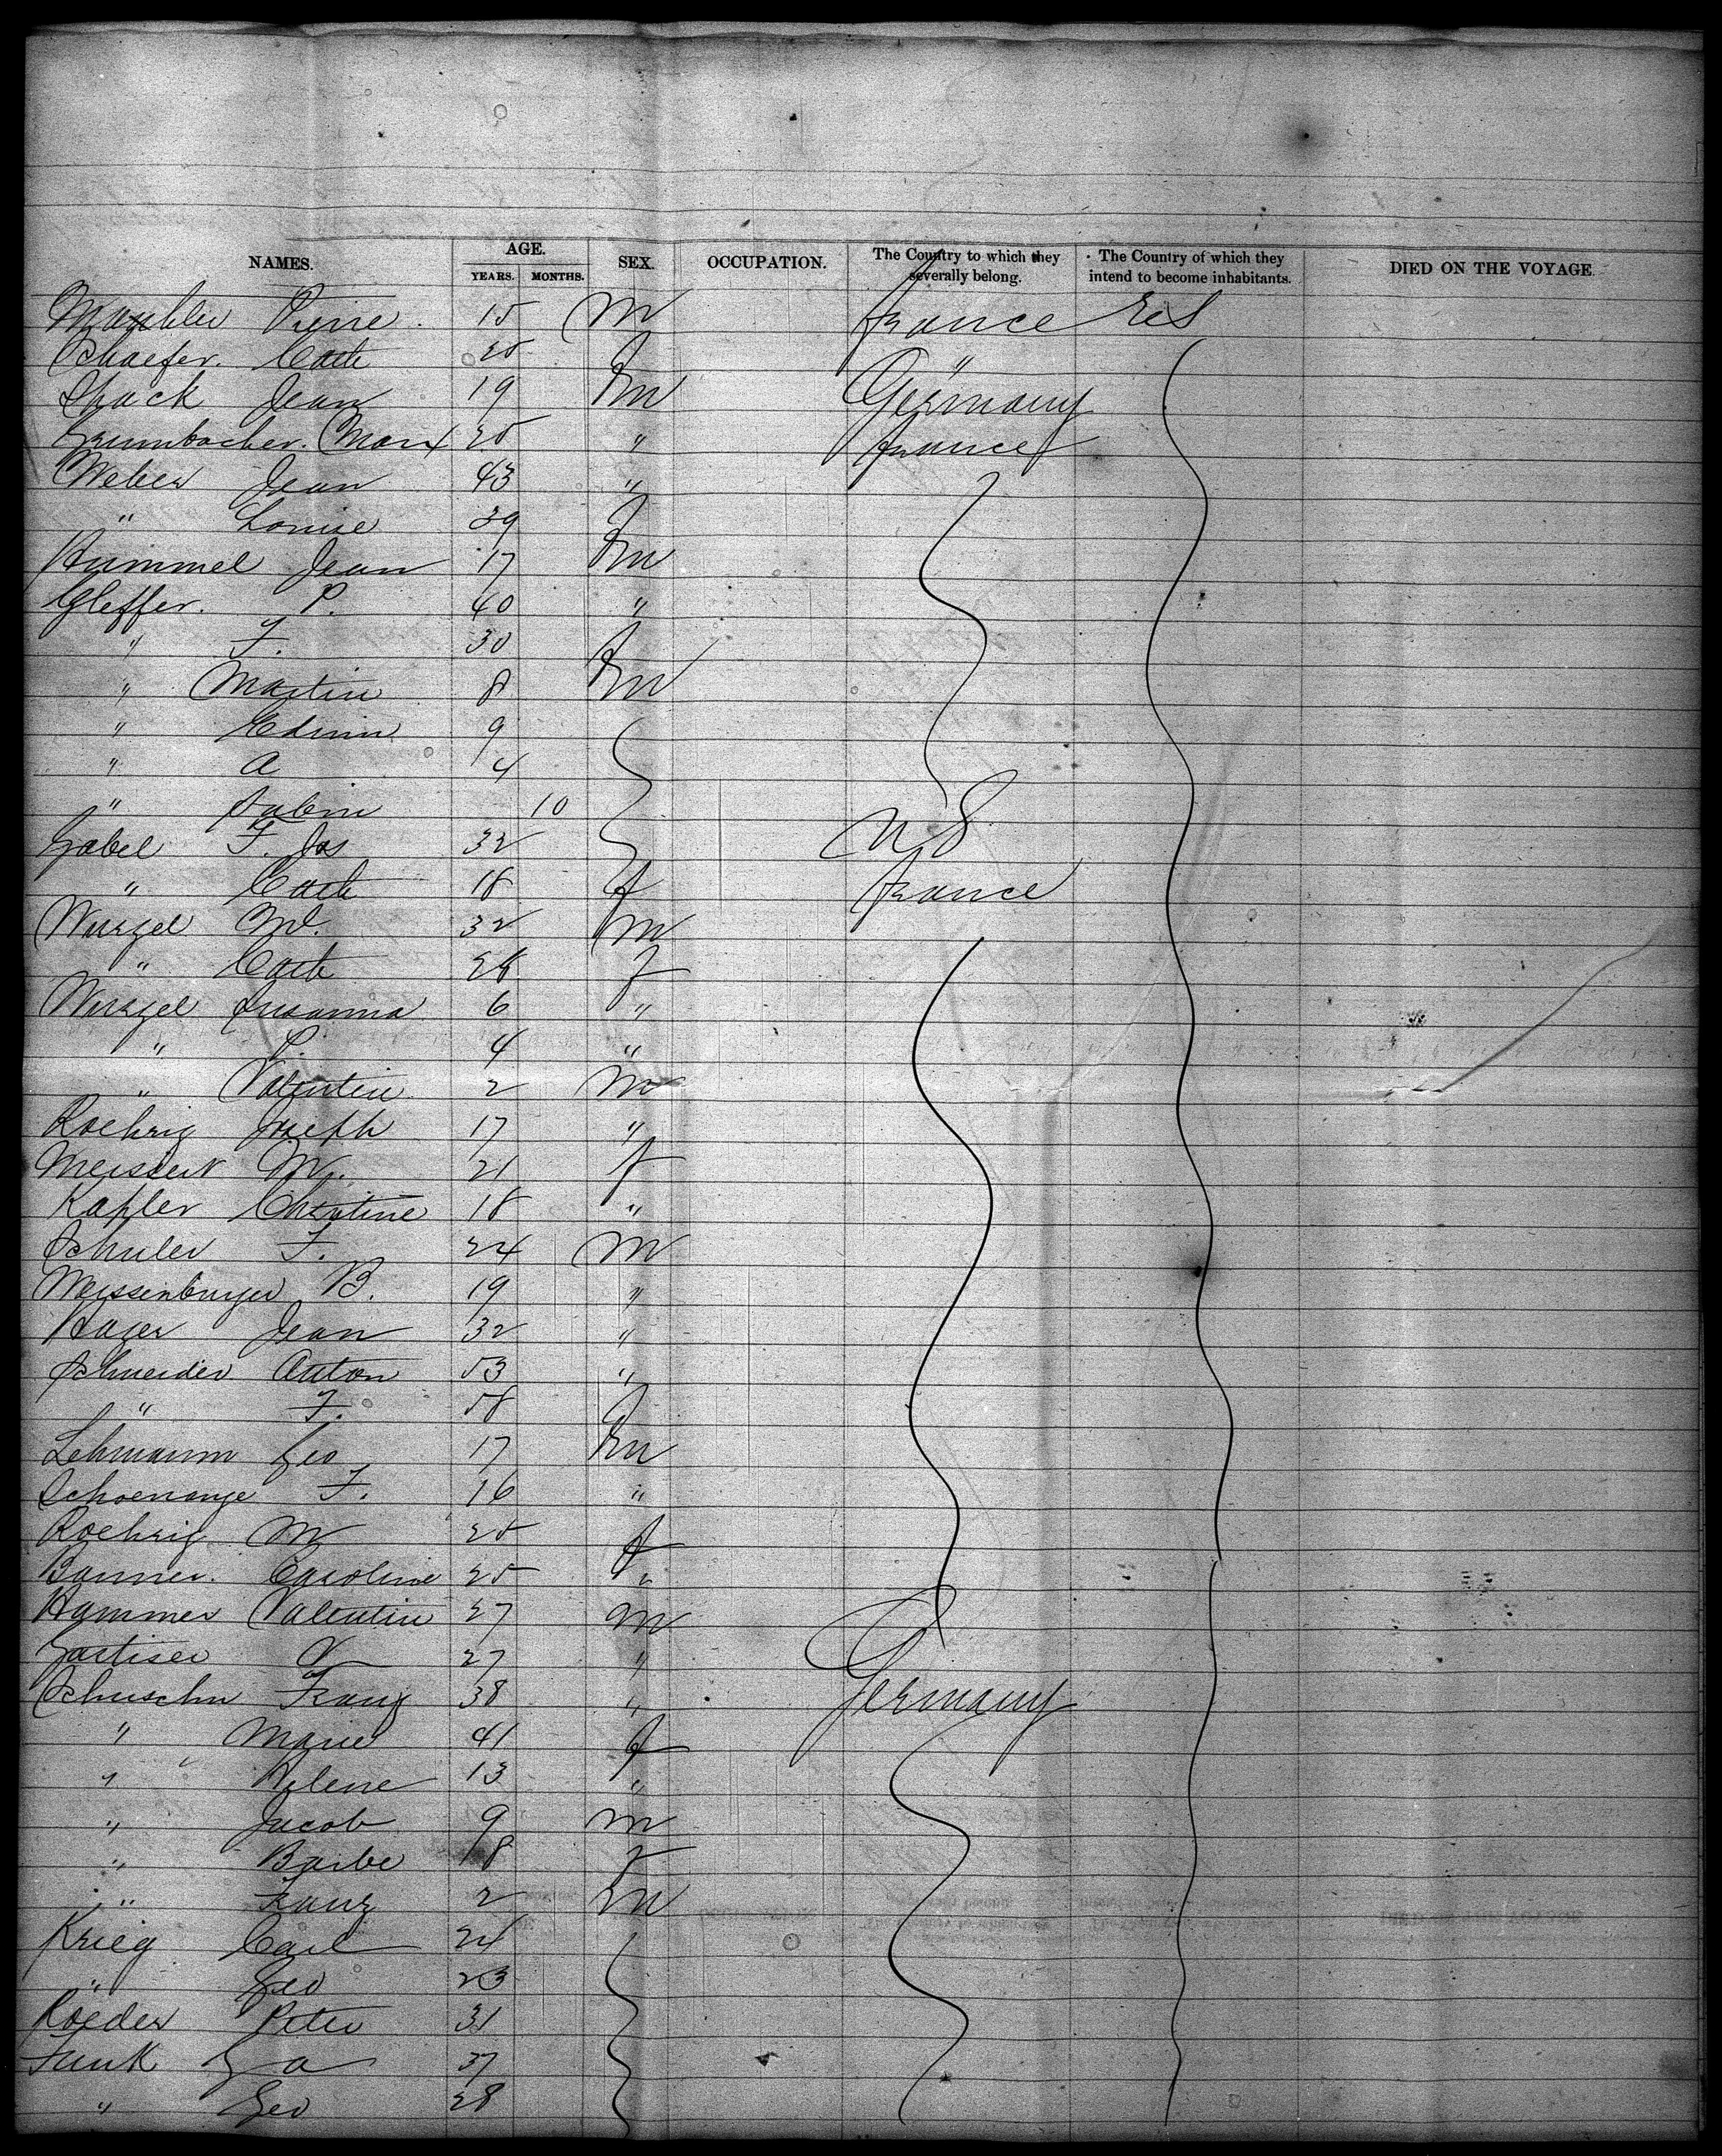 NAMES. AGE. YEARS. MONTHS. SEX. OCCUPATION. The Country to which they severally belong. The Country of which they intend to become inhabitants. DIED ON THE VOYAGE.
Pierre 15 M France
Schaefer. Cath 25 f "
Jean 19 M Germany
Grumbacher. Marx 25 " France
Weber Jean 43 "
" Louise 39 f
Hummel Jean 17 M
Gleffer. P. 40 "
" F. 30 f
" Martin 8 M
" Edwin 9
" A 4
" 10
Gabel F. Jos 32 U S
" Cath 18 f France
Wurzel M. 32 M
" Cath 28 f
Wurzel Susanna 6 "
" 4 "
" Valentin 2 M
Roehrig Joseph 17 "
Meissert M. 21 f
Kapler Christine 18 "
Schuler F. 24 M
Weissenburger B. 19 "
Hager Jean 32 "
Schneider Anton 53 "
" F. 58 f
Lehmann Geo 17 M
F. 16 "
Roehrig M 25 f
Banner. Caroline 25 "
Hammer Valentin 27 M
V 27 "
Franz 38 " Germany
" Marie 41 f
" Helene 13 "
" Jacob 9 M
" Barbe 18 f
" Franz 2 M
Krieg Carl 24
" Geo 23
Roeder Peter 31
Funk 37
" Geo 28